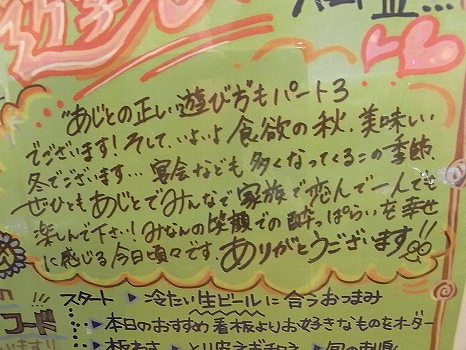 "あじとの正しい遊び方もパート3
でございます!そして、いよいよ食欲の秋、美味しい
冬でございます…宴会なども多くなってくるこの季節、
ぜひともあじとでみんなで家族で恋人で一人でも
楽しんで下さい!みなんの笑顔での酔っぱらいを幸せ
に感じる今日頃々です。ありがとうございます!!
スタート ▶冷たい生ビールに合うおつまみ
コード ▶本日のおすすめ看板よりお好きなものをオーダー